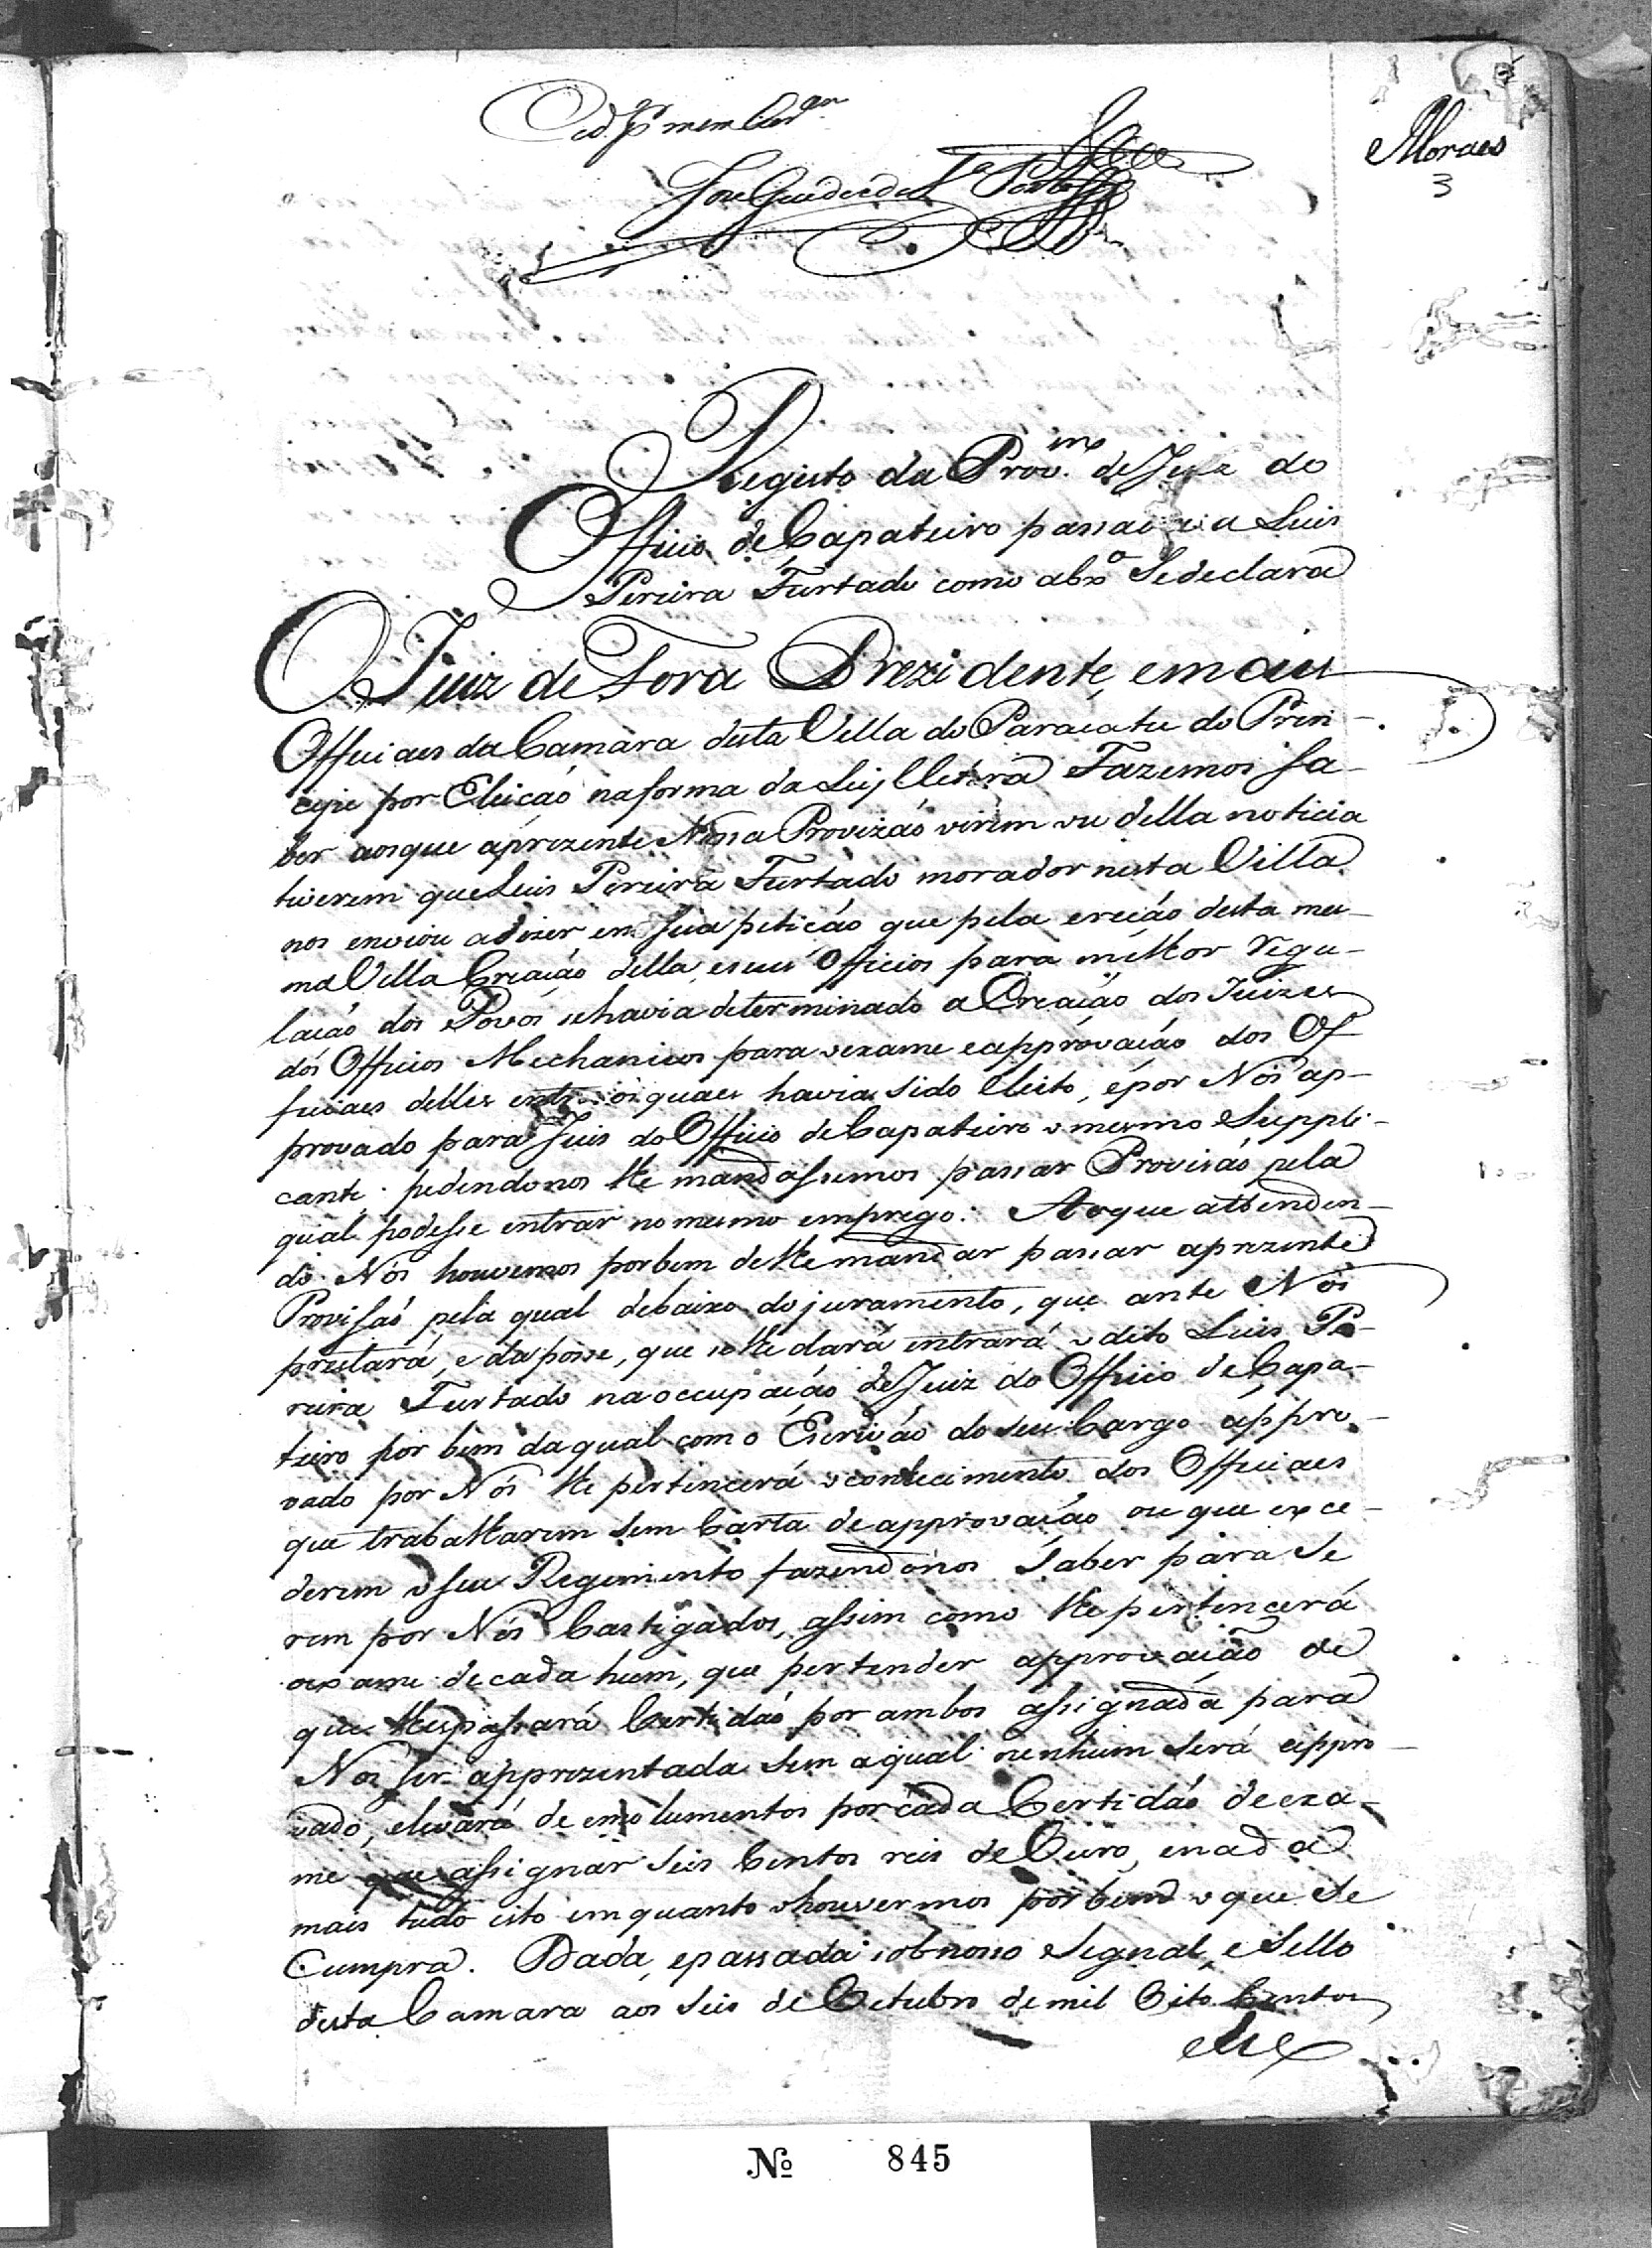 Moraes
3
Registo da Prov.m de Juiz do
Officio de Çapateiro passada a Luis
Pereira Furtado como abxo Se declara
O Juiz de Fora Prezidente, emais
Officiaes da Camara desta Villa do Paracatu do Prin-
cipe por Eleiçaó naforma da Ley etc.ra Fazemos Sa-
ber aosque aprezente Nossa Provizaó virem ou della noticia
tiverem que Luis Pereira Furtado morador nesta Villa
nos enviou adizer em Sua petiçaó que pela ereçaó desta mes-
ma Villa Creaçaó della, eseus Officios para milhor regu-
laçaó dos Povos sehavia determinado a Creaçaó dos Juizes
dos Officios Mechanicos para oexame eapprovaçaó dos Of-
ficiaes delles entre os quaes havia sido Eleito, epor Nós ap-
provado para Juis do Officio de Çapateiro o mesmo Suppli-
cante. pedindonos lhe mandassemos passar Provisaó pela
qual podesse entrar no mesmo emprego: Aoque attenden-
do Nós houvemos porbem delhe mandar passar aprezente
Provisaó pela qual debaixo dojuramento, que ante Nós
prestará, e da posse, que selhe dará entrará o dito Luis Pe-
reira Furtado na occupaçaó de Juiz do Officio de Çapa-
teiro por bem daqual com o Escrivaó do seu Cargo appro-
vado por Nós lhe pertencerá oconhecimento dos Officiaes
que trabalharem sem Carta de approvaçaó ou que exce-
derem oseu Regimento fazendonos Saber para Se
rem por Nós Castigados, assim como lhe pertencerá
oexame de cada hum, que pertender approvaçaõ de
que lhespassará Certidaó por ambos assignada para
Nos ser apprezentada sem aqual nenhum será appro-
vado, elevará de emolumentos porcada Certidaó de exa-
me que assignar seis Centos reis de Ouro, enada
mais tudo isto emquanto ohouvermos porbem oque Se
Cumpra. Dada, epassada sobnosso Signal, e Sello
desta Camara aos Seis de Outubro demil Oito Centos
No 845